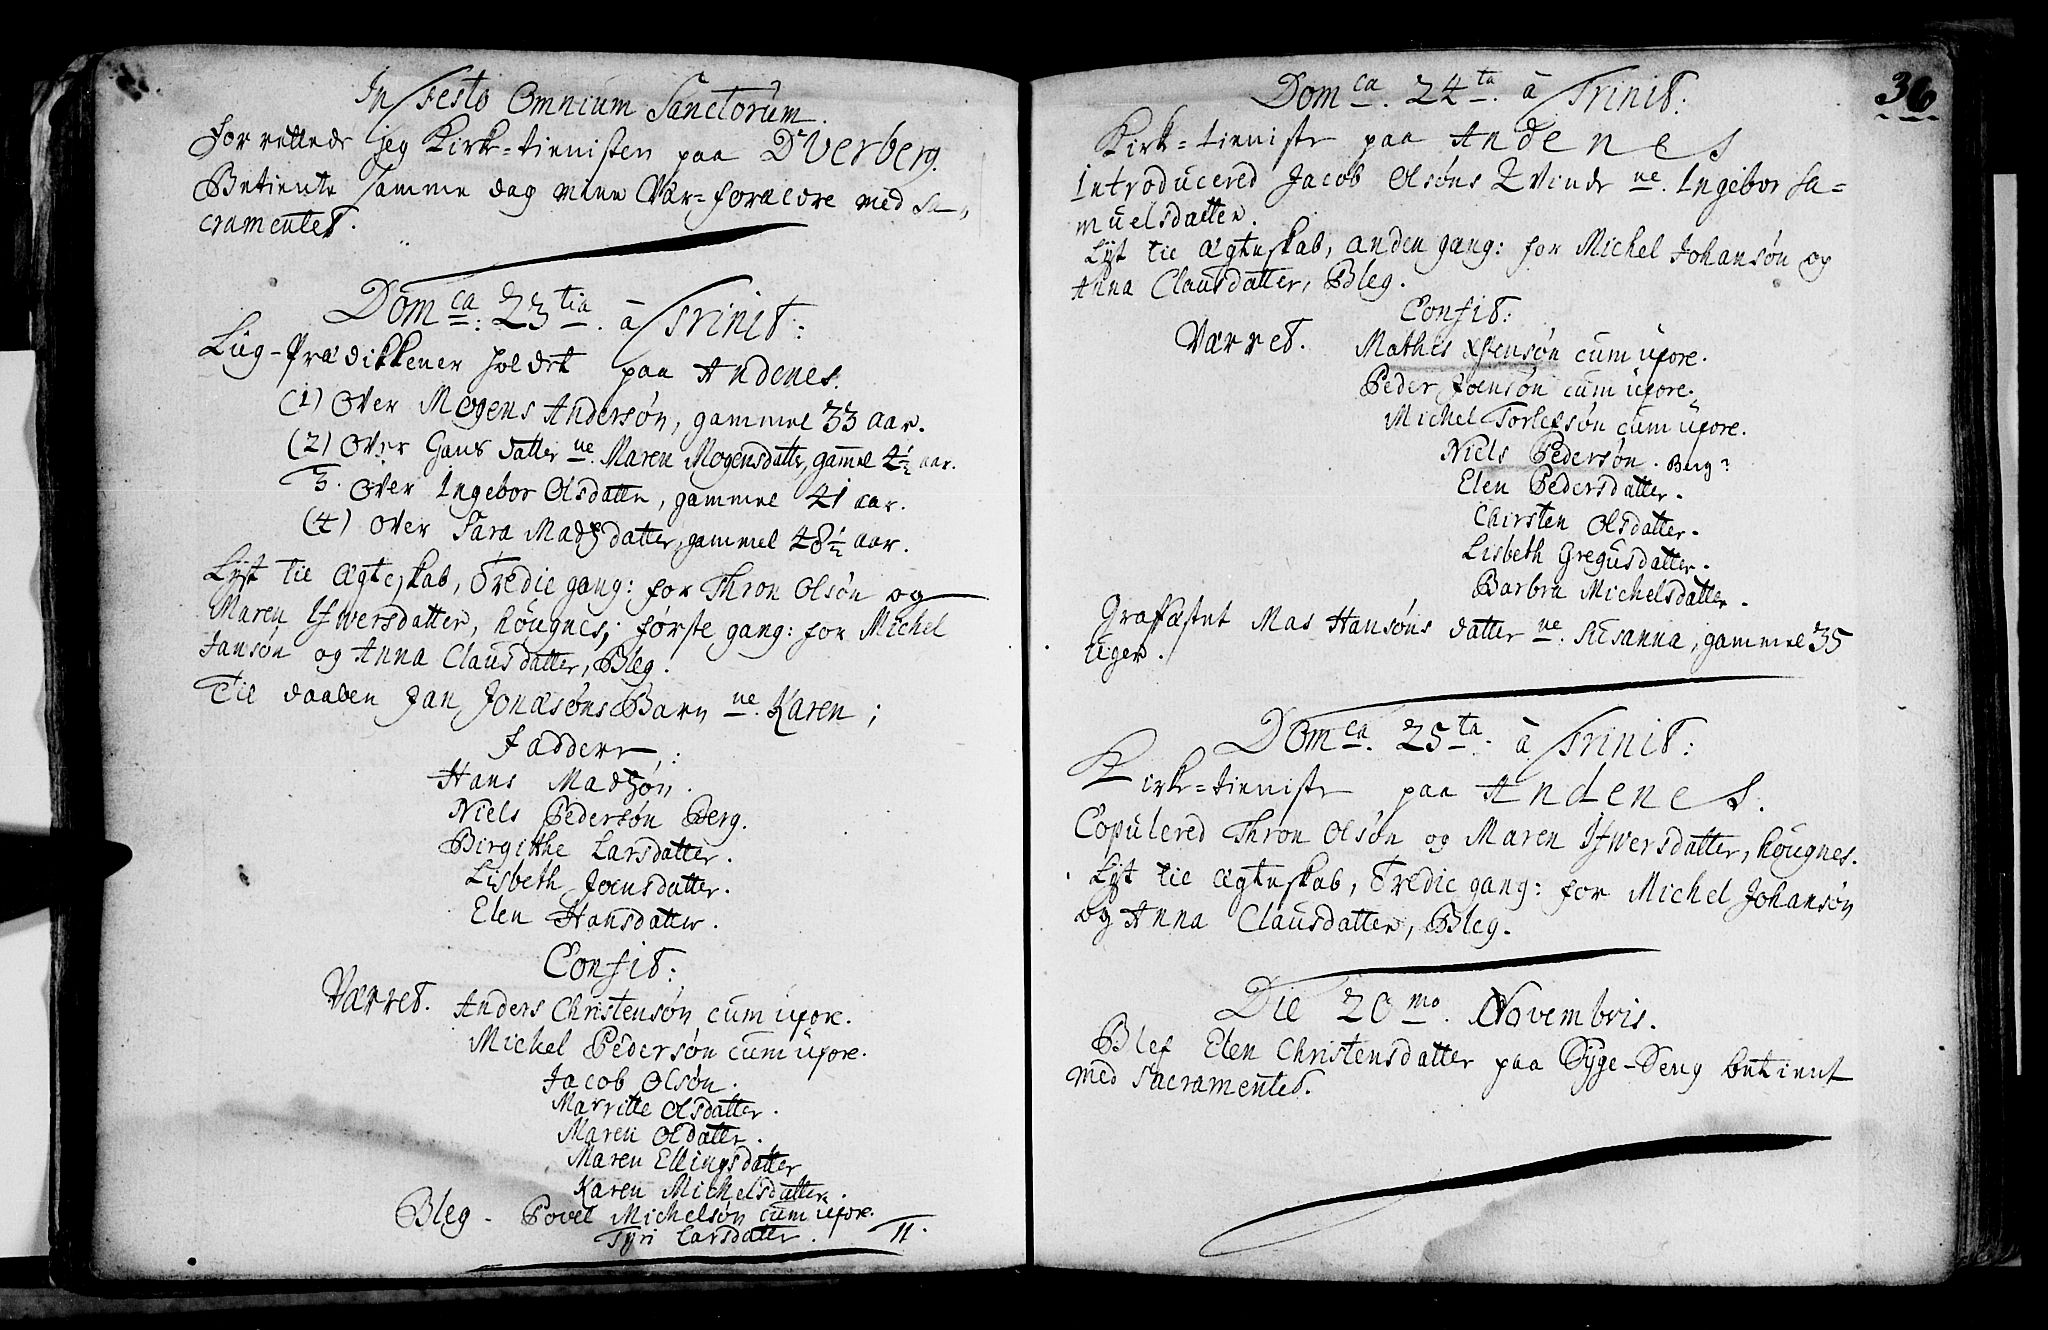 In Festo Omnium Sanctorum.
Forrettede jeg Kirke=tienisten paa Dverberg.
Betiente samme dag mine Vær=forældre med Sa-
cramentet.
Domca. 23tia. à Trinit:
Liig-Prædikkener holdet paa Andenes.
(1) Over Mogens Andersøn, gammel 33 aar.
(2) Over Hans datter ne. Maren Mogensdatter, gamel 4½ aar.
3. Over Ingebor Olsdatter, gammel 41 aar.
(4) Over Sara Madsdatter, gammel 48½ aar.
Lyst til Ægteskab, Tredie gang: for Thron Olsøn og
Maren Ifwersdatter, Høugnes; første gang: for Michel
Jansøn og Anna Clausdatter, Bleg.
Til daaben Jan Jonæsøns Barn ne. Karen;
Faddere:
Hans Madsøn.
Niels Pedersøn Berg.
Birgitthe Larsdatter.
Lisbeth Joensdatter.
Elen Hansdatter.
Confit:
Værret. Anders Christensøn cum uxore.
Michel Pedersøn cum uxore.
Jacob Olsøn.
Marritte Olsdatter.
Maren Oldatter.
Maren Ellingsdatter
Karen Michelsdatter.
Bleg - Povel Michelsøn cum uxore.
Tyri Larsdatter. 11.
36
Domca. 24ta. à Trinit:
Kirke=tieniste paa Andenes
Introducered Jacob Olsøns Qvinde ne. Ingebor Sa=
muelsdatter.
Lyst til Ægteskab, anden gang: for Michel Johansøn og
Anna Clausdatter, Bleg.
Confit:
Værret. Mathis cum uxore.
Peder Joensøn cum uxore.
Michel Torlefsøn cum uxore.
Niels Pedersøn. Berg
Elen Pedersdatter.
Chirsten Olsdatter.
Lisbeth Gregusdatter.
Barbra Michelsdatter.
Graffæstet Mas Hansøns datter ne. Susanna, gammel 35
Uger.
Domca. 25ta. à Trinit:
Kirke=tieniste paa Andenes.
Copulered Thron Olsøn og Maren Ifwersdatter, Høugnes.
Lyst til Ægteskab, Tredie gang: for Michel Johansøn
og Anna Clausdatter, Bleg.
Die 20mo. Novembris.
Blef Elen Christensdatter paa Syge-Seng betient
med Sacramentet.